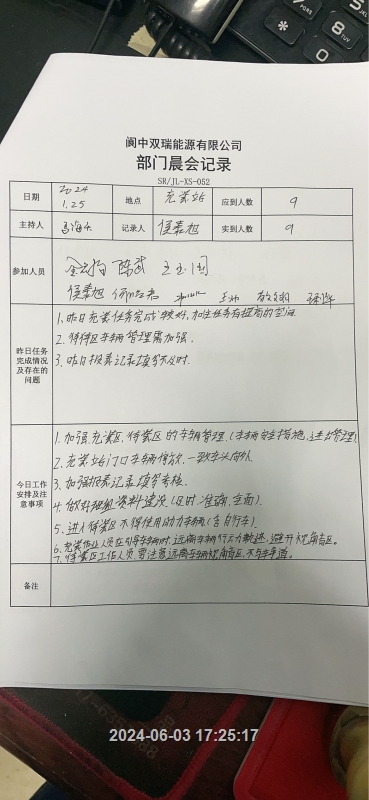 阆中双瑞能源有限公司
部门晨会记录
SR/JL-XS-052
日期 2024 1.25 地点 充装站 应到人数 9
主持人 记录人 侯素旭 实到人数 9
参加人员
侯素旭
昨日任务完成情况及存在的问题
1.昨日充装任务完成较好,加注任务有提高的空间
2.待装区车辆管理需加强.
3.昨日报表记录填写不及时.
今日工作安排及注意事项
1.加强充装区、待装区的车辆管理(车辆安全措施、进出管理)
2.充装站门口车辆停放,一致车头向外
3.加强报表记录填写考核.
4.做好班组资料建设(及时、准确、全面)
5.进入待装区不得使用动力车辆(含自行车)
6.充装作业人员在引导车辆时,远离车辆行驶轨迹,避开视角盲区。
7.待装区工作人员,需注意远离车辆视角盲区,不与车争道。
备注
2024-06-03 17:25:17